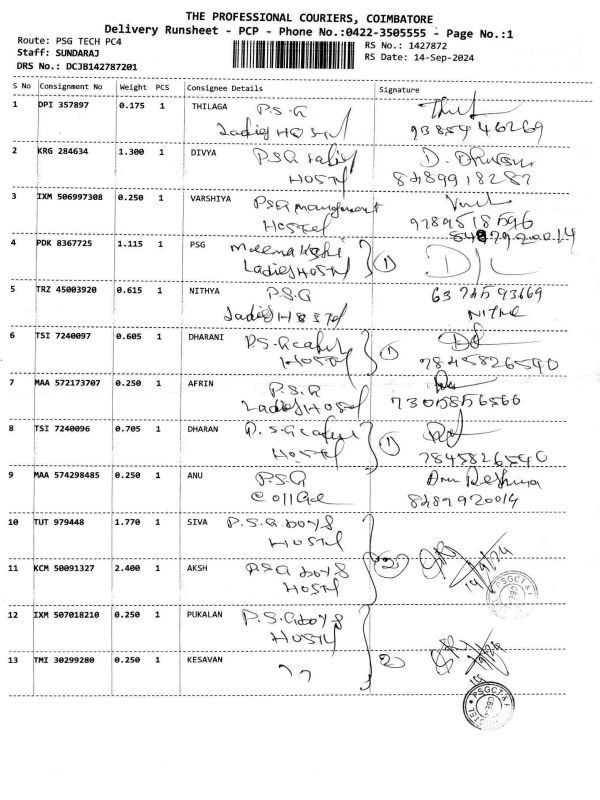 THE PROFESSIONAL COURIERS, COIMBATORE
Delivery Runsheet - PCP - Phone No.:0422-3505555 - Page No.:1
Route: PSG TECH PC4
RS No.: 1427872
Staff: SUNDARAJ
RS Date: 14-Sep-2024
DRS No.: DCJB142787201
S No Consignment No Weight PCS Consignee Details Signature
1 DPI 357897 0.175 1 THILAGA P.S.G
Ladies HOSTel 9385446269
2 KRG 284634 1.300 1 DIVYA PSG Ladies
HOSTel 8489918282
3 IXM 506997308 0.250 1 VARSHIYA PSG management
HOSTel 9789518596
8489920014
4 PDK 8367725 1.115 1 PSG Meenakshi
Ladies HOSTel 1
5 TRZ 45003920 0.615 1 NITHYA P.S.G 6374593669
Ladies HOSTel
6 TSI 7240097 0.605 1 DHARANI P.S.G
HOSTel 1 7845826590
7 MAA 572173707 0.250 1 AFRIN P.S.G
Ladies HOSTel
8 TSI 7240096 0.705 1 DHARAN P.S.G
HOSTel 1 7845826590
9 MAA 574298485 0.250 1 ANU P.S.G
College 8489920014
10 TUT 979448 1.770 1 SIVA P.S.G boys
HOSTel
11 KCM 50091327 2.400 1 AKSH PSG boys 2
HOSTel 14/9/24
12 IXM 507018210 0.250 1 PUKALAN P.S.G boys
HOSTel
13 TMI 30299280 0.250 1 KESAVAN ,, 2